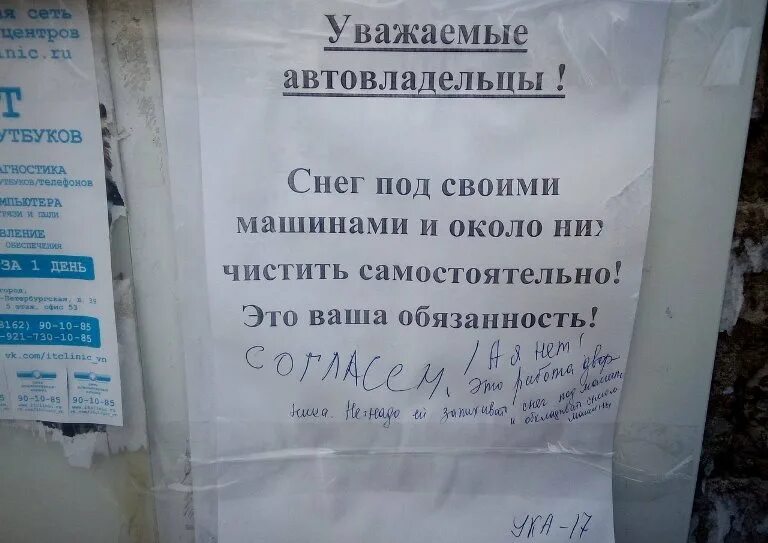 я сеть
центров
inic.ru
Т
УТБУКОВ
АГНОСТИКА
УТБУКОВ/ТЕЛЕФОНОВ
МПЬЮТЕРА
ГРЯЗИ И ПЫЛИ
ВЛЕНИЕ
ОБЕСПЕЧЕНИЯ
ЗА 1 ДЕНЬ
город,
-Петербургская, д. 39
5 этаж, офис 53
8162) 90-10-85
-921-730-10-85
vk.com/itclinic_vn
90-10-85
90-10-85
Уважаемые
автовладельцы !
Снег под своими
машинами и около них
чистить самостоятельно!
Это ваша обязанность!
СОГЛАСЕН, / А я нет!
Это работа двор-
ника. Ненадо ей запихивать снег под машины
и обкладывать снегом
машины
УКА-17